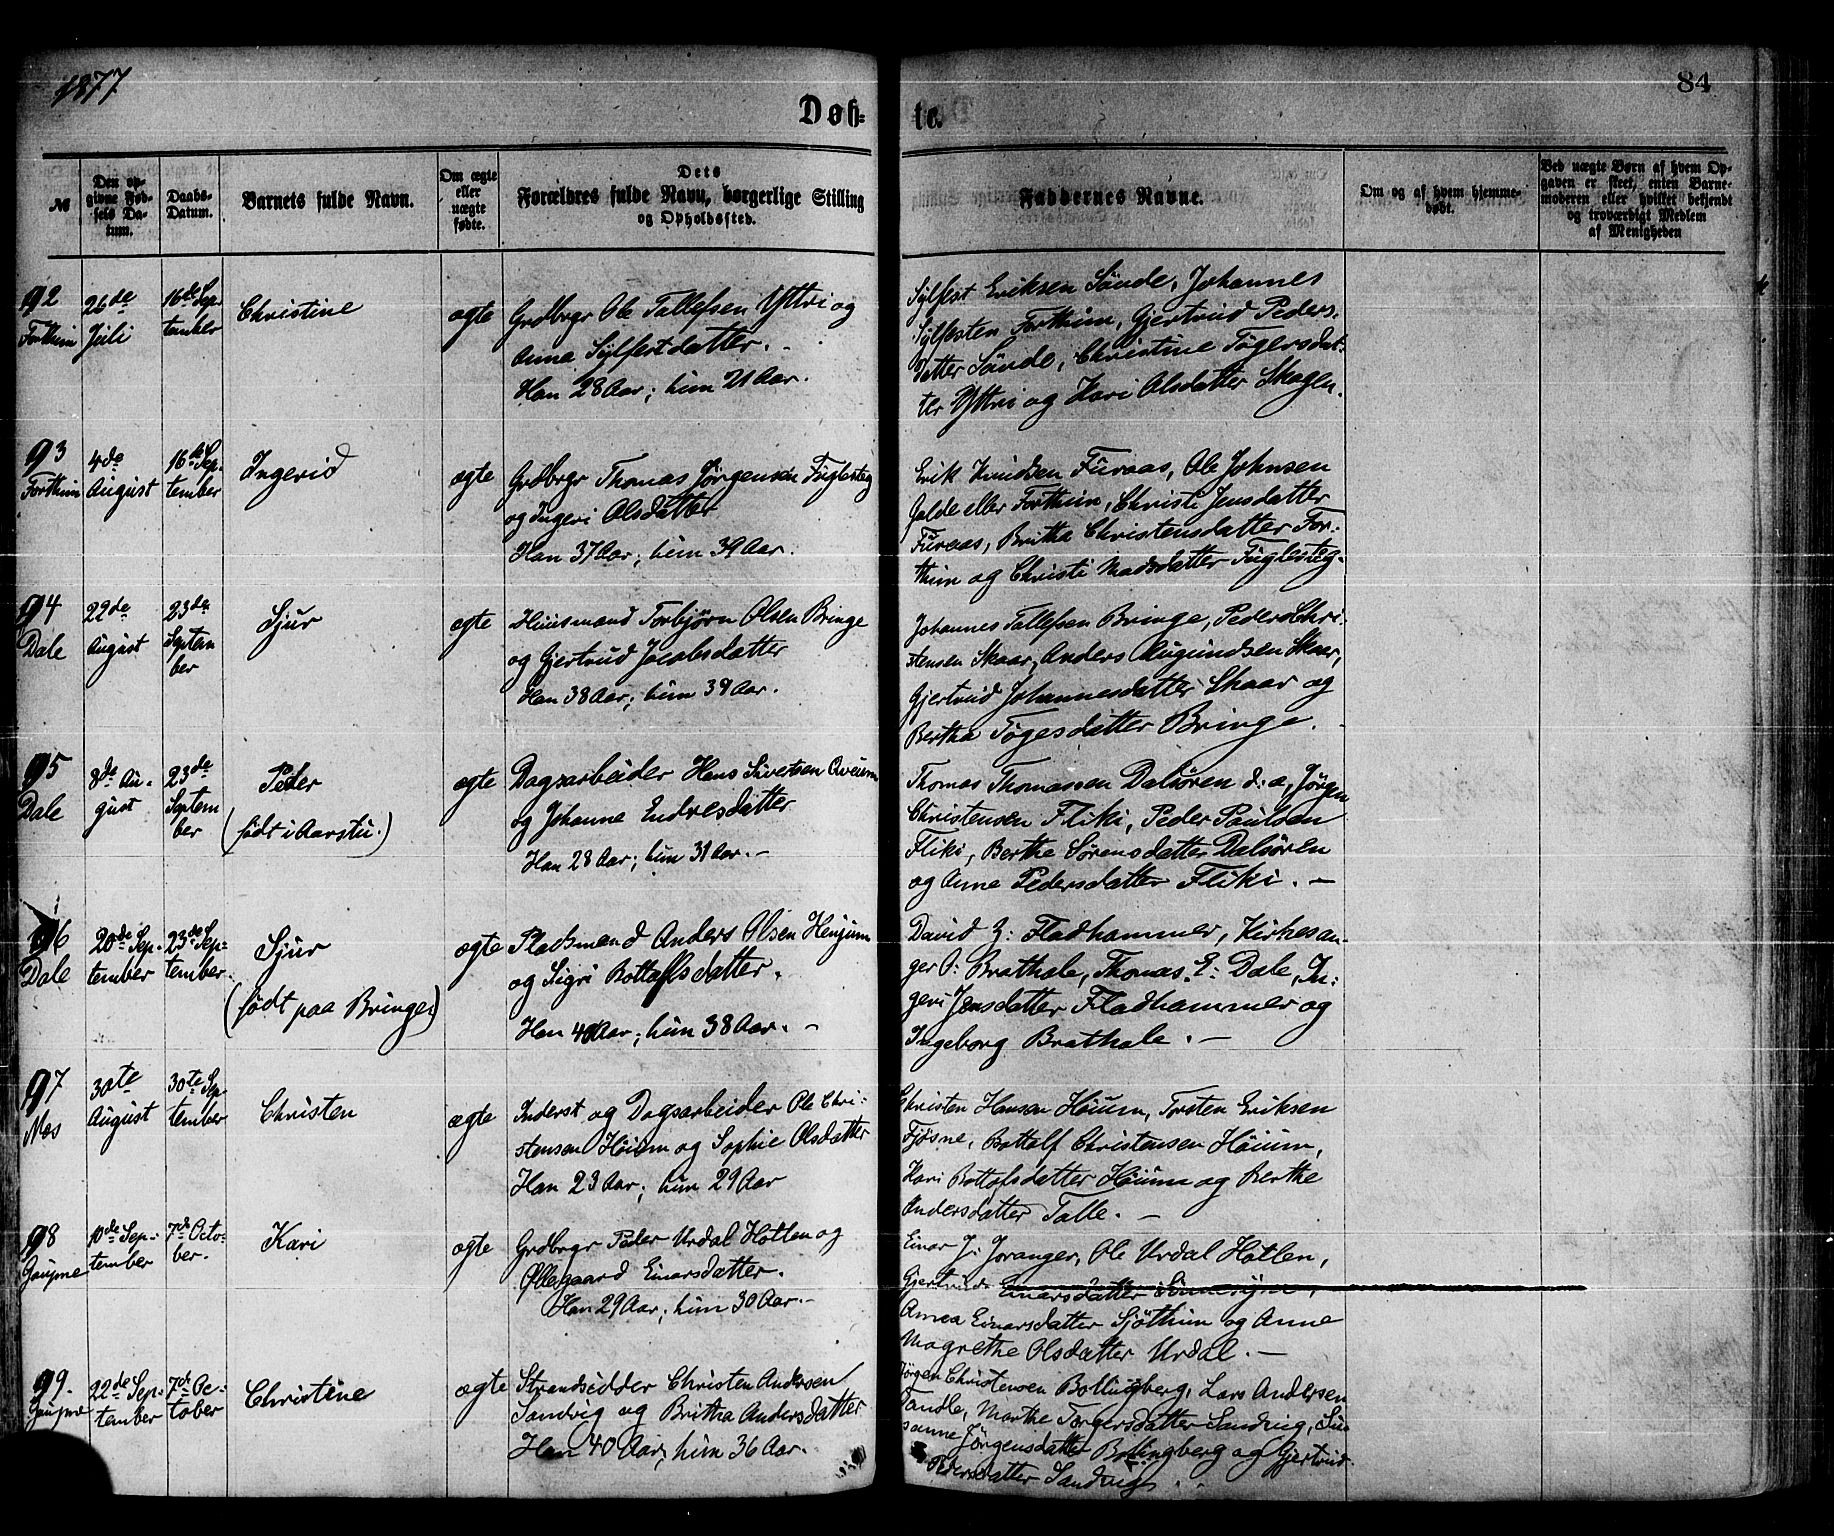 1877
84
Døb=
te.
№
Den op-
givne Fød-
sels Da-
tum.
Daabs-
Datum.
Barnets fulde Navn.
Om ægte
eller
uægte
fødte.
Dets
Forældres fulde Navn, borgerlige Stilling
og Opholdssted.
Faddernes Navne.
Om og af hvem hjemme-
døbt.
Ved uægte Børn af hvem Op-
gaven er skeet, enten Barne-
moderen eller hvilket bekjendt
og troværdigt Medlem
af Menigheden
92
Forthun
26de
Juli
16de Sep-
tember
Christine
ægte
Grdbrgr Ole Tollefsen Yttri og
Anna Sylfestdatter.
Han 28 Aar; hun 21 Aar.
Sylfest Eriksen Sønde, Johannes
Sylfesten Forthun, Gjertrud Peders-
datter Sønde, Christine Togersdat-
ter Yttri og Kari Olsdatter Skagen.
93
Forthun
4de
August
16de Sep-
tember
Ingerid
ægte
Grdbrgr Thomas Jørgensen Fuglesteg
og Ingeri Olsdatter
Han 37 Aar; hun 39 Aar.
Erik Knudsen Furaas, Ole Johnsen
Galde eller Forthun, Christi Jensdatter
Furaas, Britha Christensdatter For-
thun og Christi Madsdatter Fuglesteg.
94
Dale
22de
August
23de
Septem
ber
Sjur
ægte
Huusmand Torbjørn Olsen Bringe
og Gjertrud Jacobsdatter
Han 38 Aar; hun 39 Aar.
Johannes Tollefsen Bringe, Peder Chri-
stensen Skaar, Anders Augundsen Skaar,
Gjertrud Johannesdatter Skaar og
Bertha Togesdatter Bringe.
95
Dale
8de Au-
gust
23de
Septem
ber
Peder
(født i Aarstu.)
ægte
Dagsarbeider Hans Sivertsen Qveum
og Johanne Endresdatter
Han 28 Aar; hun 31 Aar. -
Thomas Thomassen Dalsøren d: a, Jørgen
Christensen Fliki, Peder Paulsen
Fliki, Berthe Sørensdatter Dalsøren
og Anne Pedersdatter Fliki. -
96
Dale
20de Sep-
tember
23de Sep-
tember.
Sjur
(født paa Bringe)
ægte
Pladsmand Anders Olsen Henjum
og Sigri Bottolfsdatter.
Han 40 Aar; hun 38 Aar. -
David J: Fladhammer, Kirkesan-
ger O: Brathole, Thomas E: Dale, In-
geri Jensdatter Fladhammer og
Ingeborg Brathole. -
97
Nes
30te
August
30te Sep
tember
Christen
ægte
Inderst og Dagsarbeider Ole Chri-
stensen Høium og Sophie Olsdatter
Han 23 Aar; hun 29 Aar
Christen Hansen Høium, Torsten Eriksen
Fjøsne, Bottolf Christensen Høium,
Kari Bottolfsdatter Høium og Berthe
Andersdatter Talle. -
98
Gaupne
10de Sep-
tember
7de Octo-
ber.
Kari
ægte
Grdbrgr Peder Urdal Hotlen og
Øllegaard Einarsdatter.
Han 29 Aar; hun 30 Aar. -
Einar J: Joranger, Ole Urdal Hotlen,
Gjertrud Einarsdatter
Anna Einarsdatter Sjøthun og Anne
Magrethe Olsdatter Urdal. -
99.
Gaupne
22de Sep-
tember
7de Oc-
tober
Christine
ægte
Strandsidder Christen Andersen
Sandvig og Britha Andersdatter
Han 40 Aar; hun 36 Aar.
Jørgen Christensen Bollingberg, Lars Andersen
Tandle, Marthe Torgersdatter Sandvig, Su-
sanne Jørgensdatter Bollingberg og Gjertrud
Pedersdatter Sandvig.